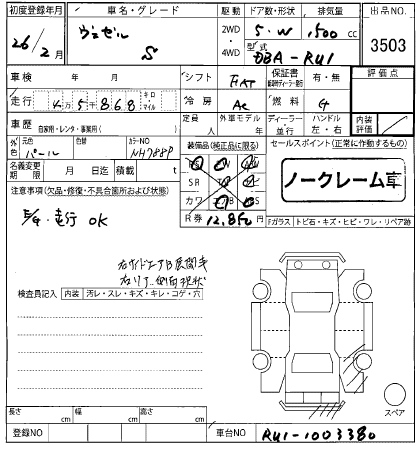 初度登録年月 車名・グレード 駆動 ドア数・形状 排気量 出品NO.
26/2月 ヴェゼル S 2WD 4WD 5・W 1500 cc 3503
型式 DBA-RU1
車検 年 月 シフト FAT 保証書 有・無 評価点
走行 5868 キロ マイル 冷房 AC 燃料 G
車歴 自家用・レンタ・事業用( ) 定員 人 外車モデル 年 ディーラー 並行 ハンドル 左・右 内装評価
外色 元色 パール 色替 カラーNO NH788P 装備品(純正品に限る) セールスポイント(正常に作動するもの)
名義変更期限 月 日迄 積載 t SR ノークレーム車
注意事項(欠品・修復・不具合箇所および状態) カワ
走行 OK R券 12,850 Fガラス トビ石・キズ・ヒビ・ワレ・リペア跡
右サイドエアB展開未
検査員記入 内装 汚レ・スレ・キズ・キレ・コゲ・穴
スペア
長さ cm 幅 cm 高さ cm
登録NO 車台NO RU1-1003380